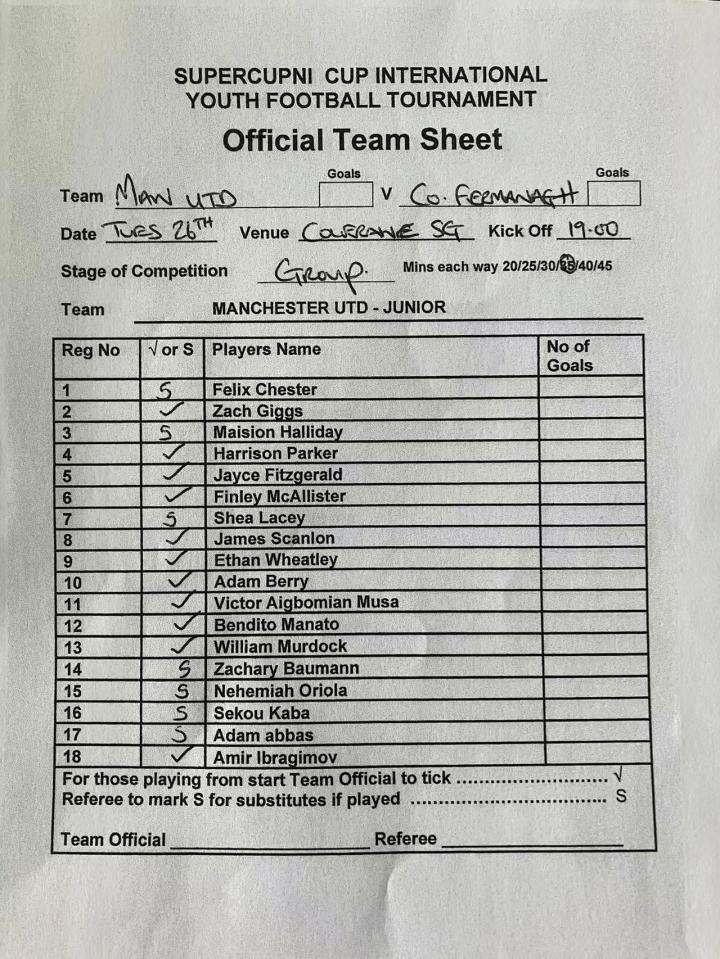 SUPERCUPNI CUP INTERNATIONAL
YOUTH FOOTBALL TOURNAMENT
Official Team Sheet
Goals Goals
Team MAN UTD V CO. FERMANAGH
Date TUES 26TH Venue COLERAINE SG Kick Off 19.00
Stage of Competition GROUP. Mins each way 20/25/30/35/40/45
Team MANCHESTER UTD - JUNIOR
Reg No √ or S Players Name No of Goals
1 S Felix Chester
2 ✓ Zach Giggs
3 S Maision Halliday
4 ✓ Harrison Parker
5 ✓ Jayce Fitzgerald
6 ✓ Finley McAllister
7 S Shea Lacey
8 ✓ James Scanlon
9 ✓ Ethan Wheatley
10 ✓ Adam Berry
11 ✓ Victor Aigbomian Musa
12 ✓ Bendito Manato
13 ✓ William Murdock
14 S Zachary Baumann
15 S Nehemiah Oriola
16 S Sekou Kaba
17 S Adam abbas
18 ✓ Amir Ibragimov
For those playing from start Team Official to tick .............................. √
Referee to mark S for substitutes if played ..................................... S
Team Official ____________________ Referee ____________________